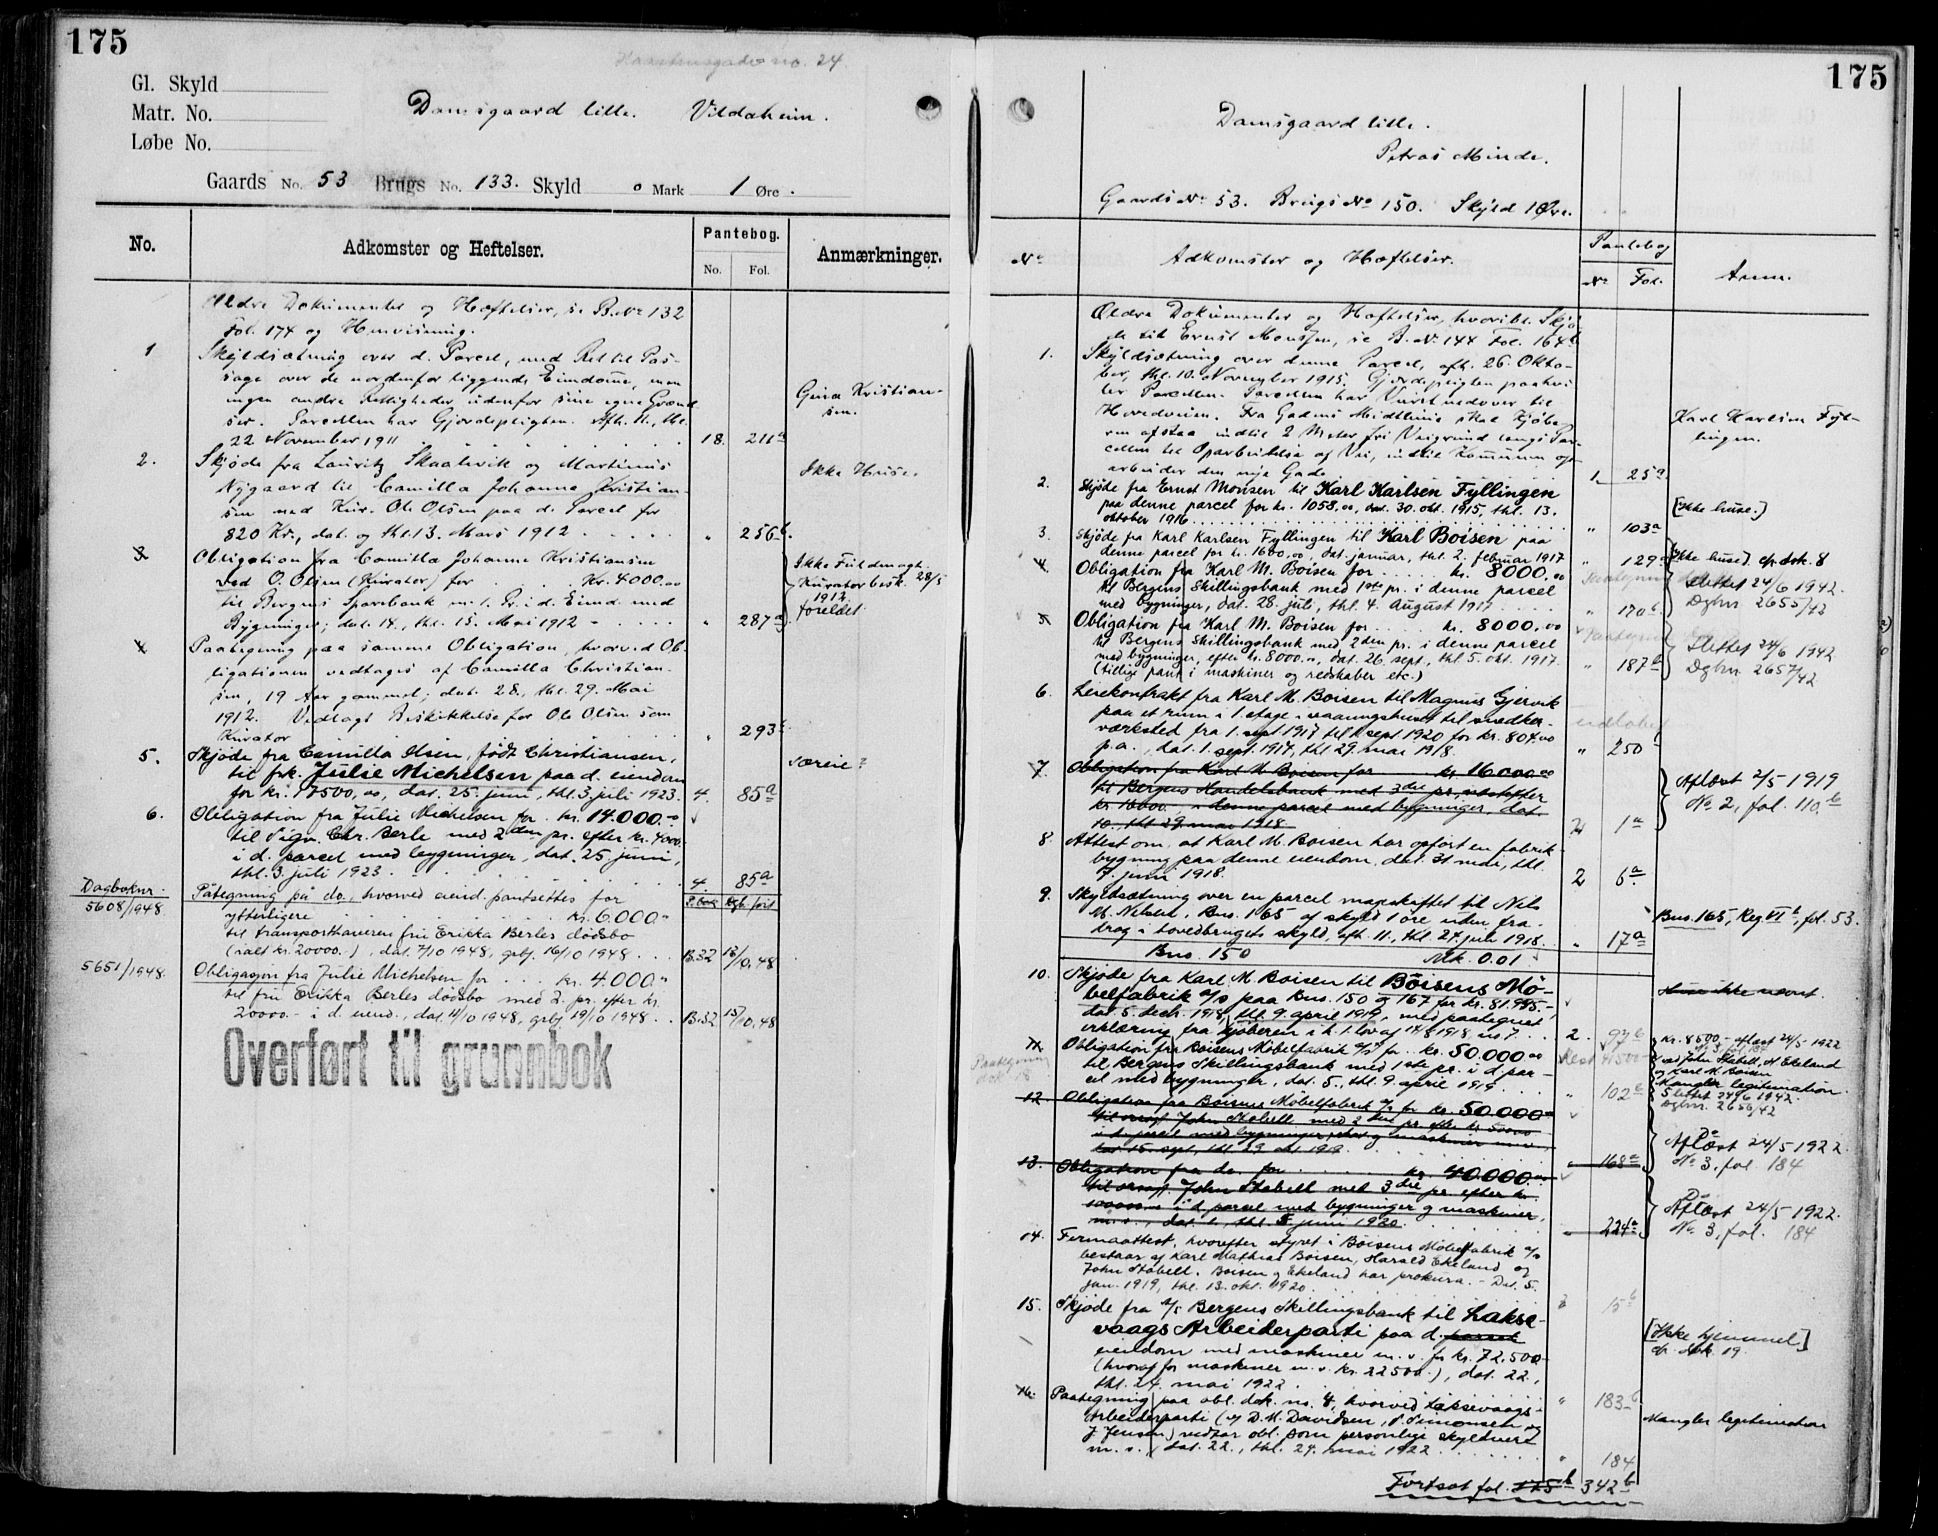 175
Kaastensgade no. 24.
Gl. Skyld
Matr. No.
Løbe No.
Damsgaard lille. Vildaheim.
Gaards No. 53 Brugs No. 133. Skyld 0 Mark 1 Øre.
No. Adkomster og Heftelser. Pantebog. No. Fol. Anmærkninger.
Ældre Dokumenter og Hæftelser, se B.No 132
Fol. 174 og Henvisning.
1 Skyldsætning over d. Parcel, med Ret til Pas-
sage over de nordenfor liggende Eiendomme, men
ingen andre Rettigheder udenfor sine egne Grænd
ser. Parcellen har Gjerdepligten. Afh. 11., thl.
22 November 1911 18. 211a
Gina Kristian-
sen.
2. Skjøde fra Lauritz Skaalevik og Martinus
Nygaard til Camilla Johanne Kristian-
sen med Kur. Ole Olsen paa d. Parcel for
820 Kr., dat. og thl. 13. Mars 1912 " 256b.
Ikke Huse.
3. Obligation fra Camilla Johanne Kristiansen
ved O. Olsen (Kurator) for Kr. 4000.00
til Bergens Sparebank m. 1. Pr. i d. Eiend. med
Bygninger; dat. 14., thl. 15. Mai 1912 - " 287a
Ikke Fuldmagt.
Kurator besk. 28/5
1912.
foreldet
4 Paategning paa samme Obligation, hvorved Ob-
ligationen vedtages af Camilla Christian-
sen, 19 Aar gammel; dat. 28., thl. 29. Mai
1912. Vedlagt Beskikkelse for Ole Olsen som
Kurator " 293b
5. Skjøde fra Camilla Olsen, født Christiansen,
til frk. Julie Michelsen paa d. eiendom
for kr. 17500,00, dat. 25. juni, thl. 3. juli 1923. 4. 85a
særeie?
6. Obligation fra Julie Michelsen for kr. 14.000.-
til Sign. Chr. Berle med 2den pr. efter kr. 4000.-
i d. parcel med bygninger, dat. 25 juni,
thl. 3. juli 1923. 4. 85a
Dagboknr.
5608/1948. Påtegning på do., hvorved eiend. pantsettes for
ytterligere kr. 6.000.-
til transporthaveren fru Erikka Berles dødsbo
(ialt kr. 20000.-), dat. 7/10 1948, grbf. 16/10 1948 B.32 15/10.48
5651/1948. Obligasjon fra Julie Michelsen for kr. 4.000.-
til fru Erikka Berles dødsbo med 2. pr. efter kr.
20000.- i d. eiend., dat. 11/10 1948, grbf. 19/10 1948. B.32 15/10.48
Overført til grunnbok
175
Damsgaard lille.
Petras Minde.
Gaards No 53. Brugs No 150. Skyld 1 Øre.
No Adkomster og Hæftelser. Pantebog No Fol. Anm.
Ældre Dokumenter og Hæftelser, hvoribl. Skjø-
de til Ernst Monssen, se B. No 144 Fol. 164b
1. Skyldsætning over denne Parcel, afh. 26. Okto-
ber, thl. 10. November 1915. Gjerdepligten paahvi-
ler Parcellen. Parcellen har Veiret nedover til
Hovedveien. Fra Gadens Midtlinie skal Kjøbe-
ren afstaa indtil 2 Meter fri Veigrund langs Par-
cellen til Oparbeidelse af Vei, indtil Kommunen op-
arbeider den nye Gade 1. 25a.
Karl Karlsen Fyl-
lingen.
2. Skjøde fra Ernst Monsen til Karl Karlsen Fyllingen
paa denne parcel for kr. 1058,00, dat. 30. okt. 1915, thl. 13.
oktober 1916 " 103a
[Ikke huse.]
3. Skjøde fra Karl Karlsen Fyllingen til Karl Boisen paa
denne parcel for kr. 1600,00, dat. januar, thl. 2. februar 1917 " 129a
[Ikke huse]. cfr. dok. 8
4. Obligation fra Karl M. Boisen for kr. 8000.00
til Bergens Skillingsbank med 1ste pr. i denne parcel
med bygninger, dat. 28. juli, thl. 4. August 1917 " 170b.
Slettet 24/6 1942.
Dgbnr. 2655/42
5. Obligation fra Karl M. Boisen for kr. 8000,00
til Bergens Skillingsbank med 2den pr. i denne parcel
med bygninger, efter kr. 8000.00, dat. 26. sept., thl. 5. okt. 1917.
(tillige pant i maskiner og redskaber etc.) " 187b
Slettet 24/6 1942
Dgbnr. 2657/42
6. Leiekontrakt fra Karl M. Boisen til Magnus Gjervik
paa et rum i 1. etage i vaaningshuset til snedker-
værksted fra 1. sept 1917 til 1 sept 1920 for kr. 804.00
p.a., dat. 1. sept. 1917, thl 29. mai 1918. " 250
udløbet
7. Obligation fra Karl M Boisen for kr. 16000.00
til Bergens Handelsbank med 3die pr, næstefter
kr. 16000.- i denne parcel med bygninger, dat.
10., thl 29. mai 1918 2 1a
Aflæst 2/5 1919
No 2, fol. 110b
8. Attest om, at Karl M. Boisen har opført en fabrik-
bygning paa denne eiendom, dat. 31 mai, thl.
7. juni 1918. 2 6a.
9. Skyldsætning over en parcel mageskiftet til Nils
M. Nilsen, Bno. 165 af skyld 1 øre uden fra-
drag i hovedbrugets skyld, afh. 11., thl. 27. juli 1918. " 17a
Bno. 165, Reg. VI b, fol. 53.
Bno. 150 Mk. 0.01
10. Skjøde fra Karl M. Boisen til Boisens Mø-
belfabrik a/s paa Bno. 150 og 167 for kr. 81.985.-
dat. 5. dech. 1918, thl. 9. april 1919, med paategnet
erklæring fra kjøberen i h. t. lov af 14/8 1918 no 7. 2. 97b
Huse ikke nævnt.
11. Obligation fra Boisens Møbelfabrik a/s for kr. 50.000.00
til Bergens Skillingsbank med 1ste pr. i d. par-
cel med bygninger, dat. 5., thl. 9. april 1919. " 102b
Paategning
dok. 18
Rest 41500
Kr. 8500.- aflæst 24/5-1922
ved John Stabell, H. Ekeland
og Karl M. Boisen
Mangler legitimation.
Slettet 24/6 1942.
Dgbnr. 2656/42
12. Obligation fra Boisens Møbelfabrik a/s for kr. 50.000.00
til orsf. John Stabell med 2den pr. efter kr. 50000
i d. parcel med bygninger, og maskiner m.v.,
dat 15. sept, thl. 29. okt 1919. " 168a
Aflæst 24/5 1922.
No 3, fol 184
13. Obligation fra do. for kr. 40.000.00
til orsf. John Stabell med 3die pr. efter kr.
100000.- i d. parcel med bygninger og maskiner,
m. v., dat 1., thl. 5 juni 1920. " 224a
Aflæst 24/5 1922.
No 3, fol. 184
14. Firmaattest, hvorefter styret i Boisens Møbelfabrik a/s
bestaar af Karl Mathias Boisen, Harald Ekeland og
John Stabell. Boisen og Ekeland har prokura. - Dat. 5.
jan. 1919, thl. 13. okt. 1920. 3 15b
15. Skjøde fra a/s Bergens Skillingsbank til Lakse-
vaags Arbeiderparti paa d. parcel
eiendom med maskiner m. v. for kr. 72.500.-
(hvoraf for maskiner m. v. kr. 22500.-), dat. 22.,
thl. 24. mai 1922. " 183b
[Ikke hjemmel]
cfr. dok. 19.
16. Paategning paa obl. dok. no. 4, hvorved Laksevaags
Arbeiderparti (v/ D. M. Davidsen, S. Simonsen og
J. Jensen) vedtar obl. som personlige skyldnere
m. v., dat. 22., thl. 24. mai 1922 " 184
Mangler legitimation
Fortsat fol. 175b 342b